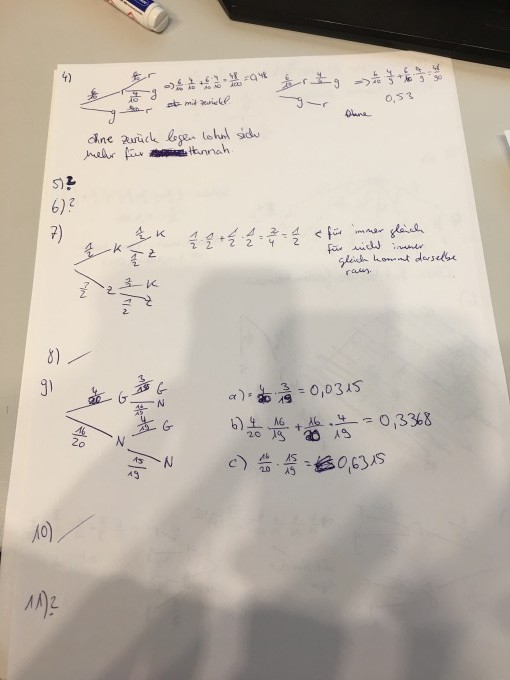 4)
6/10 r 4/10 g g r => 6/10 · 4/10 + 6/10 · 4/10 = 48/100 = 0,48
mit zurück
6/10 r 4/9 g g r => 6/10 · 4/9 + 6/10 · 4/9 = 48/90
0,53
Ohne
ohne zurück legen lohnt sich
mehr für Hannah.
5) ?
6) ?
7)
1/2 K 1/2 K 1/2 Z
1/2 Z 1/2 K 1/2 Z
1/2 · 1/2 + 1/2 · 1/2 = 2/4 = 1/2
< für immer gleich
für nicht immer
gleich kommt dasselbe
raus.
8) /
9)
4/20 G 3/19 G 16/19 N
16/20 N 4/19 G 15/19 N
a) = 4/20 · 3/19 = 0,0315
b) 4/20 · 16/19 + 16/20 · 4/19 = 0,3368
c) 16/20 · 15/19 = 0,6315
10) /
11) ?